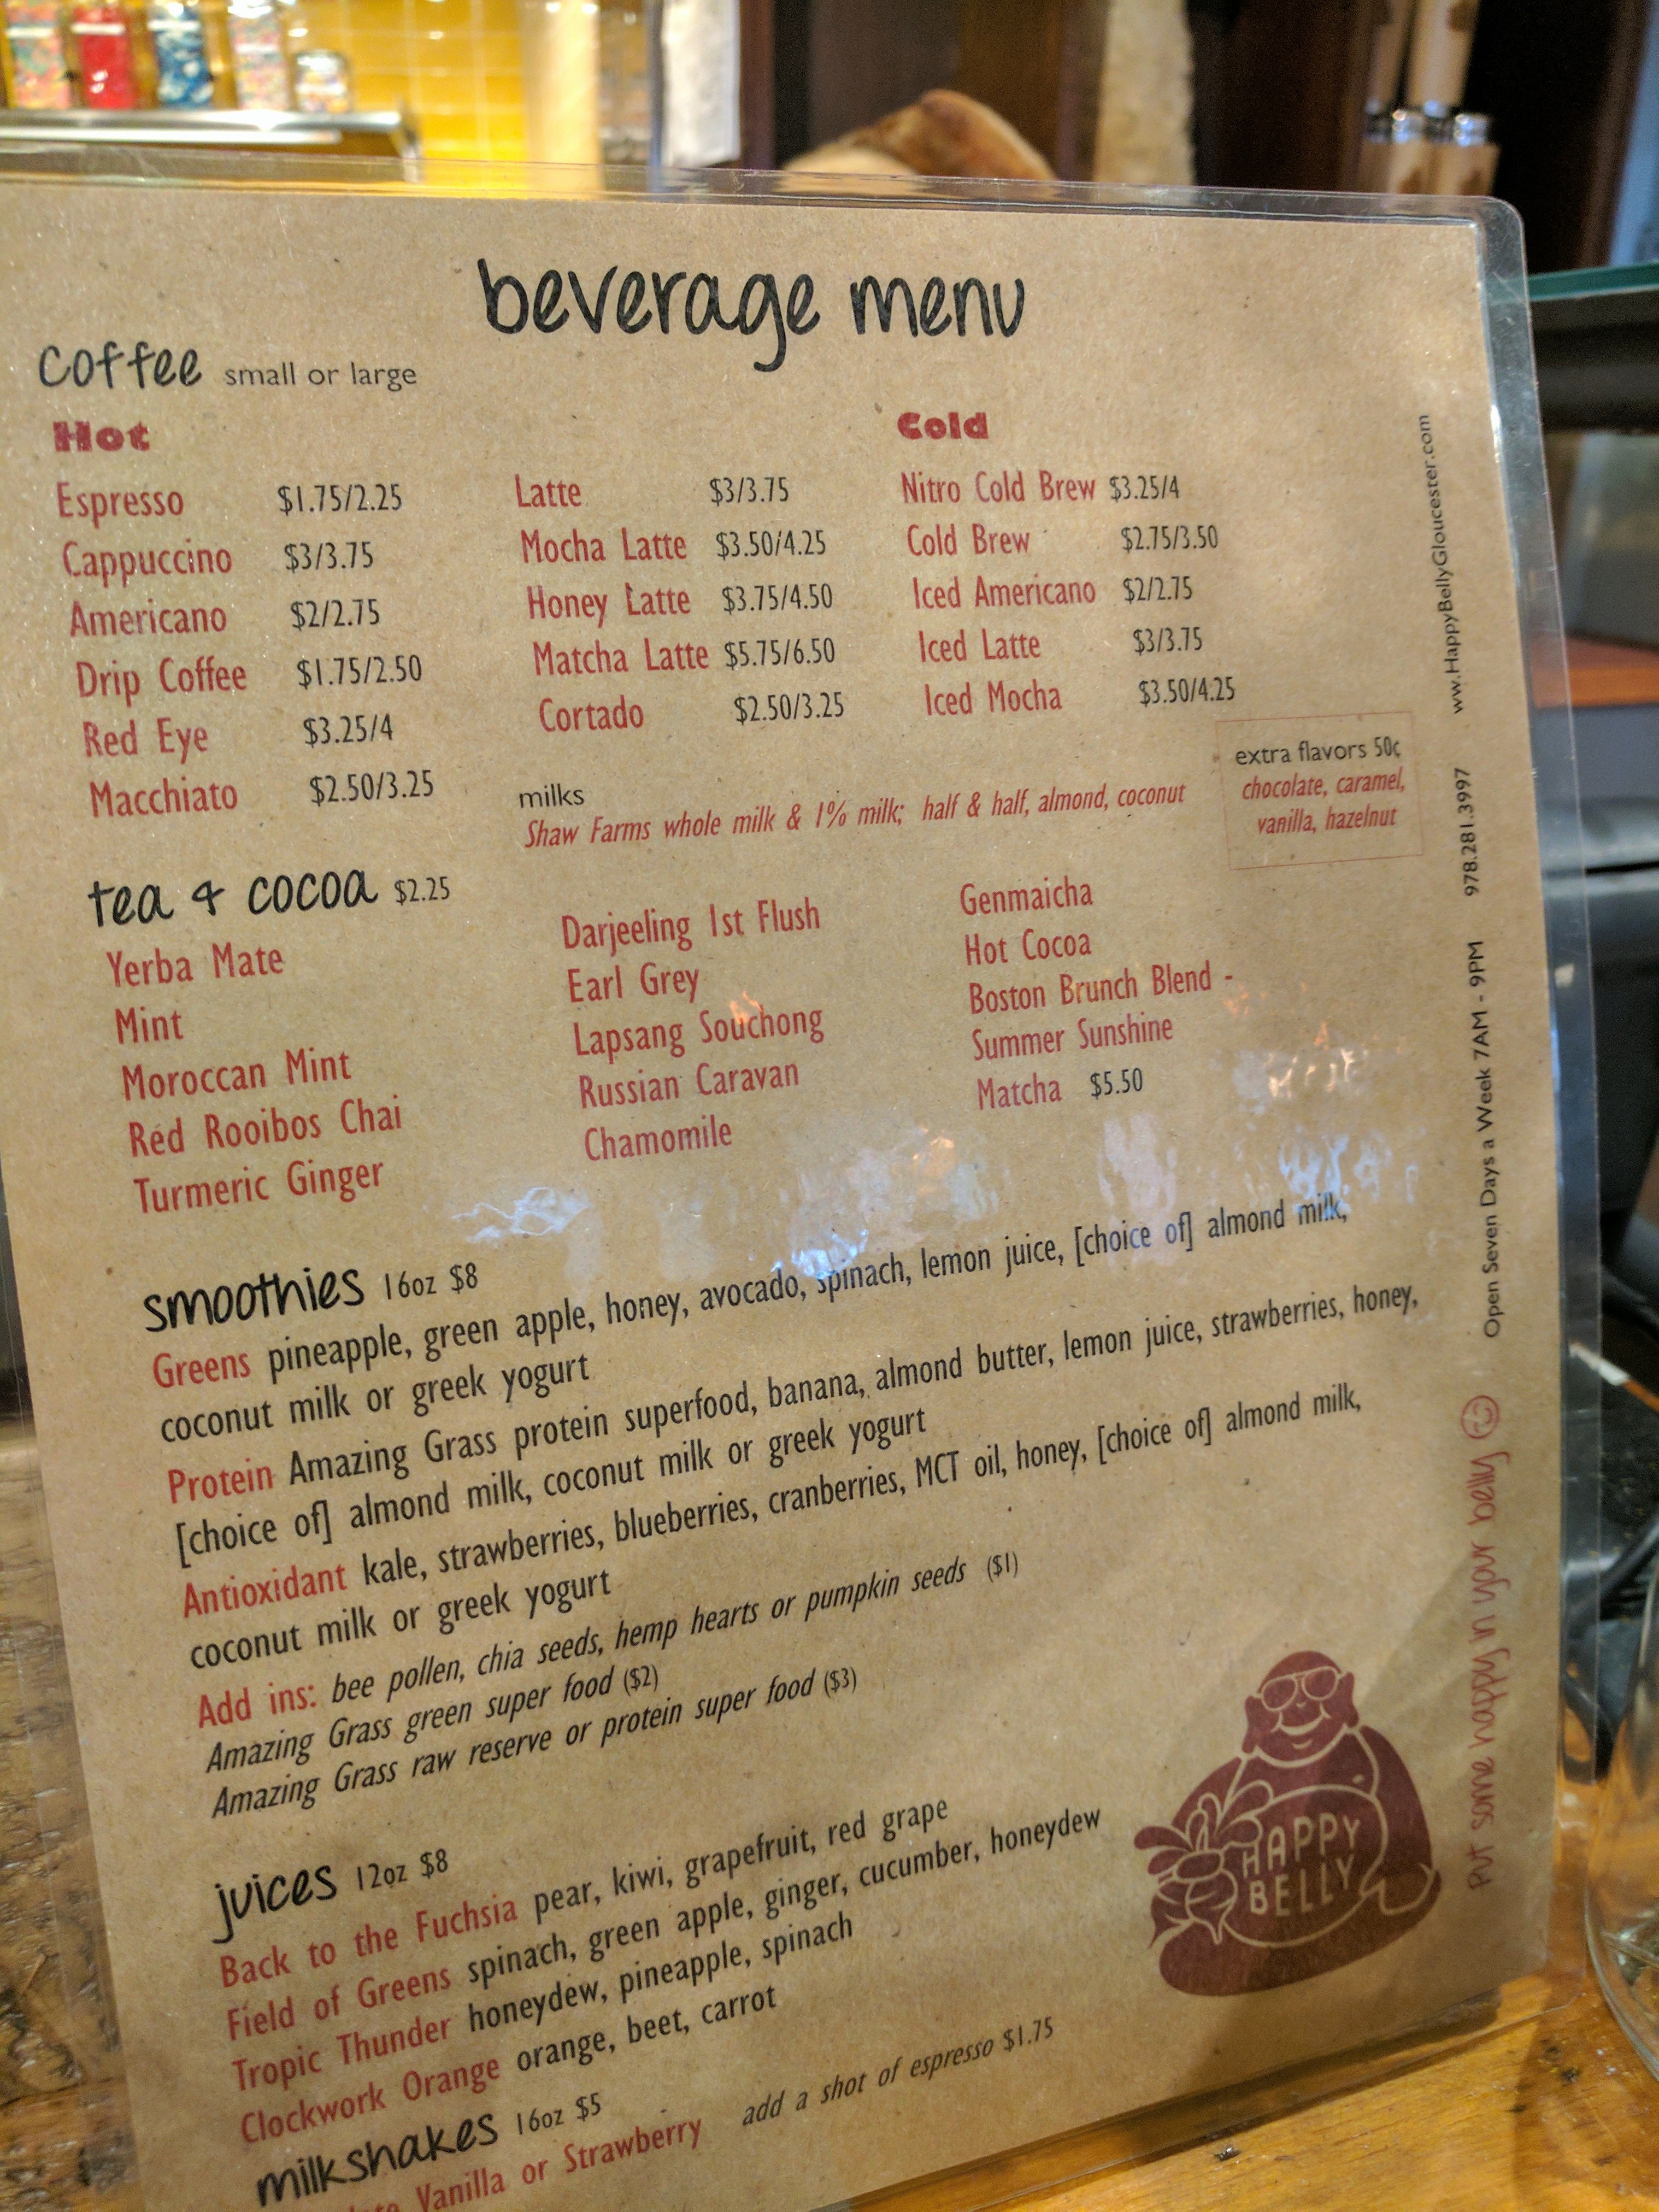 beverage menu
coffee small or large
Hot
Espresso $1.75/2.25
Cappuccino $3/3.75
Americano $2/2.75
Drip Coffee $1.75/2.50
Red Eye $3.25/4
Macchiato $2.50/3.25
Latte $3/3.75
Mocha Latte $3.50/4.25
Honey Latte $3.75/4.50
Matcha Latte $5.75/6.50
Cortado $2.50/3.25
Cold
Nitro Cold Brew $3.25/4
Cold Brew $2.75/3.50
Iced Americano $2/2.75
Iced Latte $3/3.75
Iced Mocha $3.50/4.25
milks
Shaw Farms whole milk & 1% milk; half & half, almond, coconut
extra flavors 50c
chocolate, caramel,
vanilla, hazelnut
tea & cocoa $2.25
Yerba Mate
Mint
Moroccan Mint
Red Rooibos Chai
Turmeric Ginger
Darjeeling 1st Flush
Earl Grey
Lapsang Souchong
Russian Caravan
Chamomile
Genmaicha
Hot Cocoa
Boston Brunch Blend -
Summer Sunshine
Matcha $5.50
smoothies 16oz $8
Greens pineapple, green apple, honey, avocado, spinach, lemon juice, [choice of] almond milk,
coconut milk or greek yogurt
Protein Amazing Grass protein superfood, banana, almond butter, lemon juice, strawberries, honey,
[choice of] almond milk, coconut milk or greek yogurt
Antioxidant kale, strawberries, blueberries, cranberries, MCT oil, honey, [choice of] almond milk,
coconut milk or greek yogurt
Add ins: bee pollen, chia seeds, hemp hearts or pumpkin seeds ($1)
Amazing Grass green super food ($2)
Amazing Grass raw reserve or protein super food ($3)
juices 12oz $8
Back to the Fuchsia pear, kiwi, grapefruit, red grape
Field of Greens spinach, green apple, ginger, cucumber, honeydew
Tropic Thunder honeydew, pineapple, spinach
Clockwork Orange orange, beet, carrot
milkshakes 16oz $5
Vanilla or Strawberry add a shot of espresso $1.75
HAPPY
BELLY
Put some happy in your belly Open Seven Days a Week 7AM - 9PM 978.281.3997 ww.HappyBellyGloucester.com